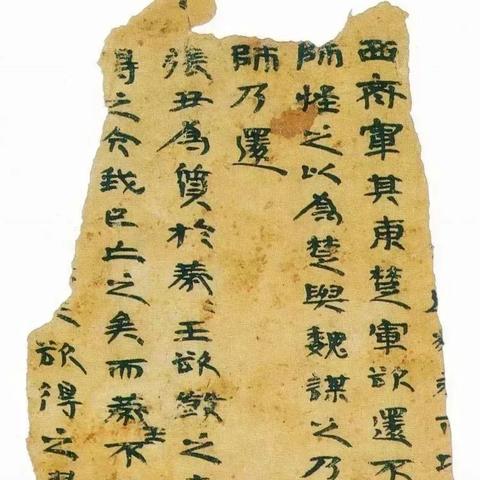 西齊軍其東楚軍欲還不
師怪之以為楚與魏謀之乃
師乃還
張丑為質於燕王欲殺之
得之今我已亡之矣而燕王不
欲得之